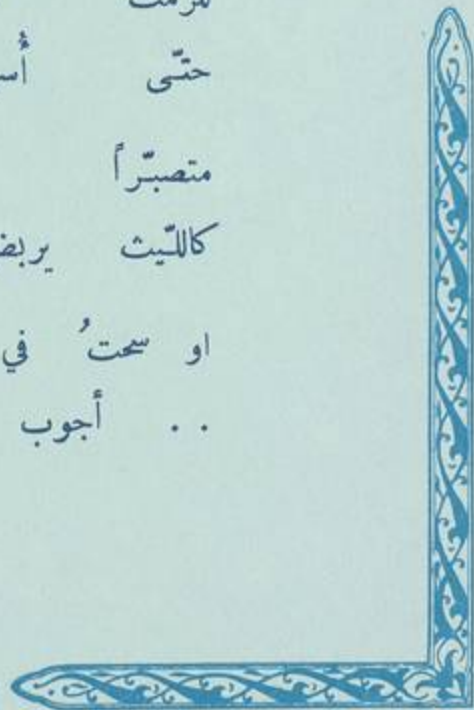 حتّى
متصبّراً
كاللّيث
او سحتُ في
.. أجوب